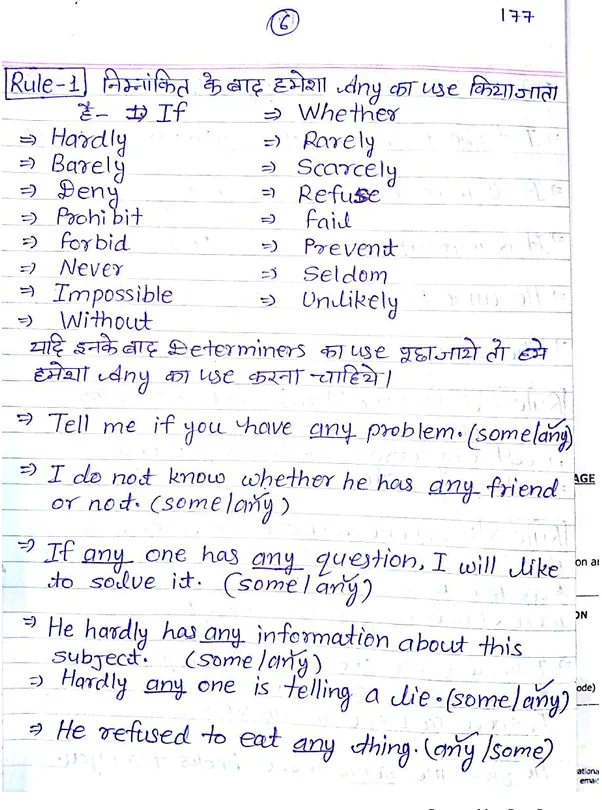 6
177
Rule-1 निम्नांकित के बाद हमेशा Any का use किया जाता
है- ⇒ If ⇒ Whether
⇒ Hardly ⇒ Rarely
⇒ Barely ⇒ Scarcely
⇒ Deny ⇒ Refuse
⇒ Prohibit ⇒ fail
⇒ forbid ⇒ Prevent
⇒ Never ⇒ Seldom
⇒ Impossible ⇒ Unlikely
⇒ Without
यदि इनके बाद Determiners का use पूछा जाये तो हमे
हमेशा Any का use करना चाहिये।
⇒ Tell me if you have any problem. (some/any)
⇒ I do not know whether he has any friend
or not. (some/any)
⇒ If any one has any question, I will like
to solve it. (some/any)
⇒ He hardly has any information about this
subject. (some/any)
⇒ Hardly any one is telling a lie. (some/any)
⇒ He refused to eat any thing. (any/some)
AGE
on
ON
ode)
ationa
ema